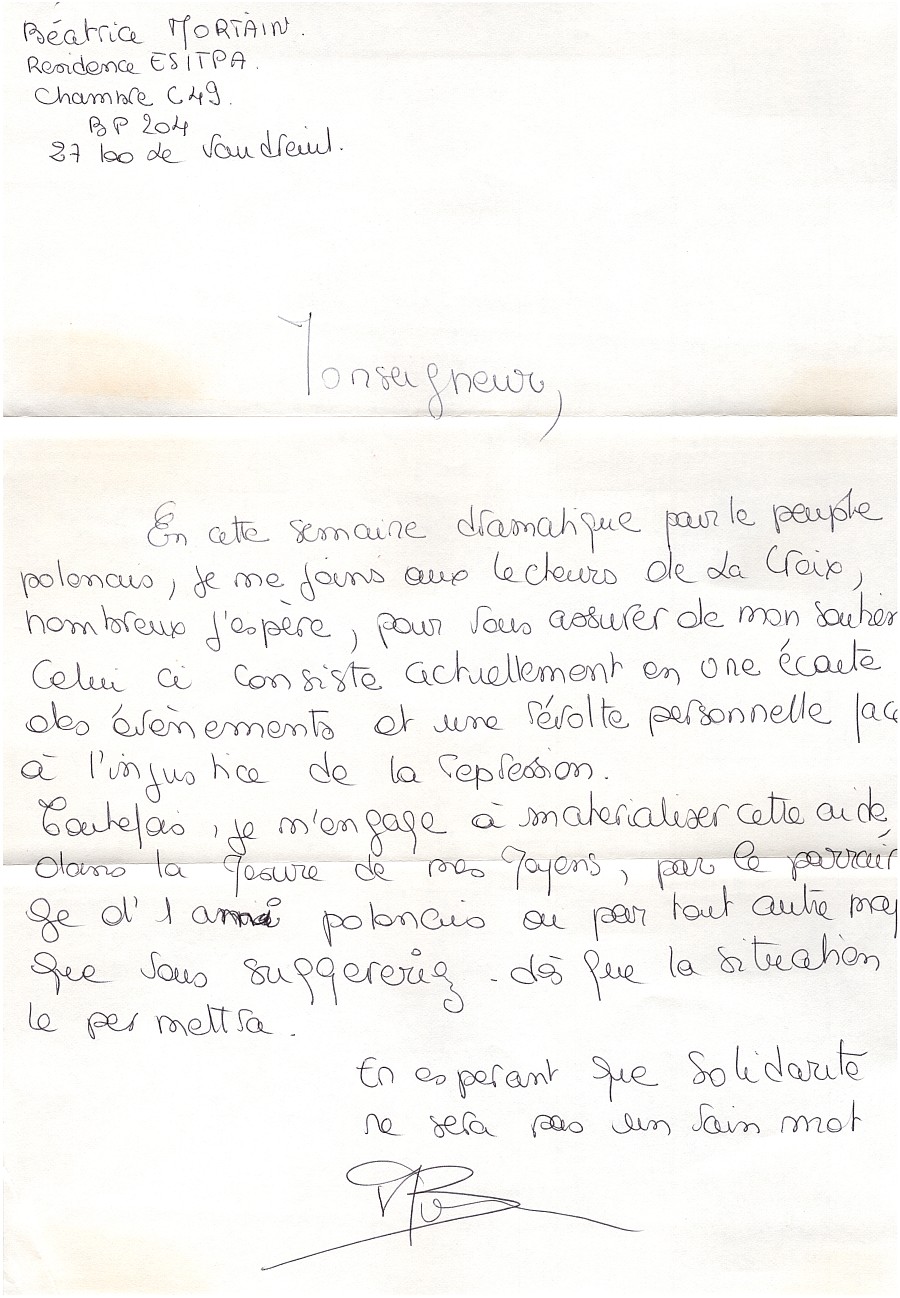 Béatrice MORTAIN.
Résidence ESITPA.
Chambre C49.
BP 204
27 100 Le Vaudreuil.
Monseigneur,
En cette semaine dramatique pour le peuple
polonais, je me joins aux lecteurs de La Croix,
nombreux j'espère, pour vous assurer de mon soutien
Celui ci consiste actuellement en une écoute
des évènements et une révolte personnelle face
à l'injustice de la repression.
Toutefois, je m'engage à materialiser cette aide
dans la Mesure de mes Moyens, par le parrain
ge d'1 ami polonais ou par tout autre moy
que vous suggererez - dès que la situation
le permettra.
En esperant que Solidarité
ne sera pas un vain mot